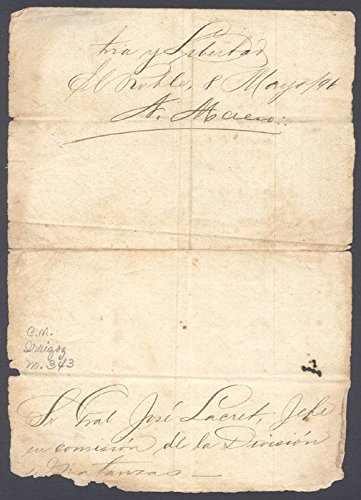 tria y Libertad
El Roble, 8 Mayo/96
A. Maceo
C.M.
Irrigoz
M. 343
Sr Gral José Lacret, Jefe
en comisión de la División
Matanzas —